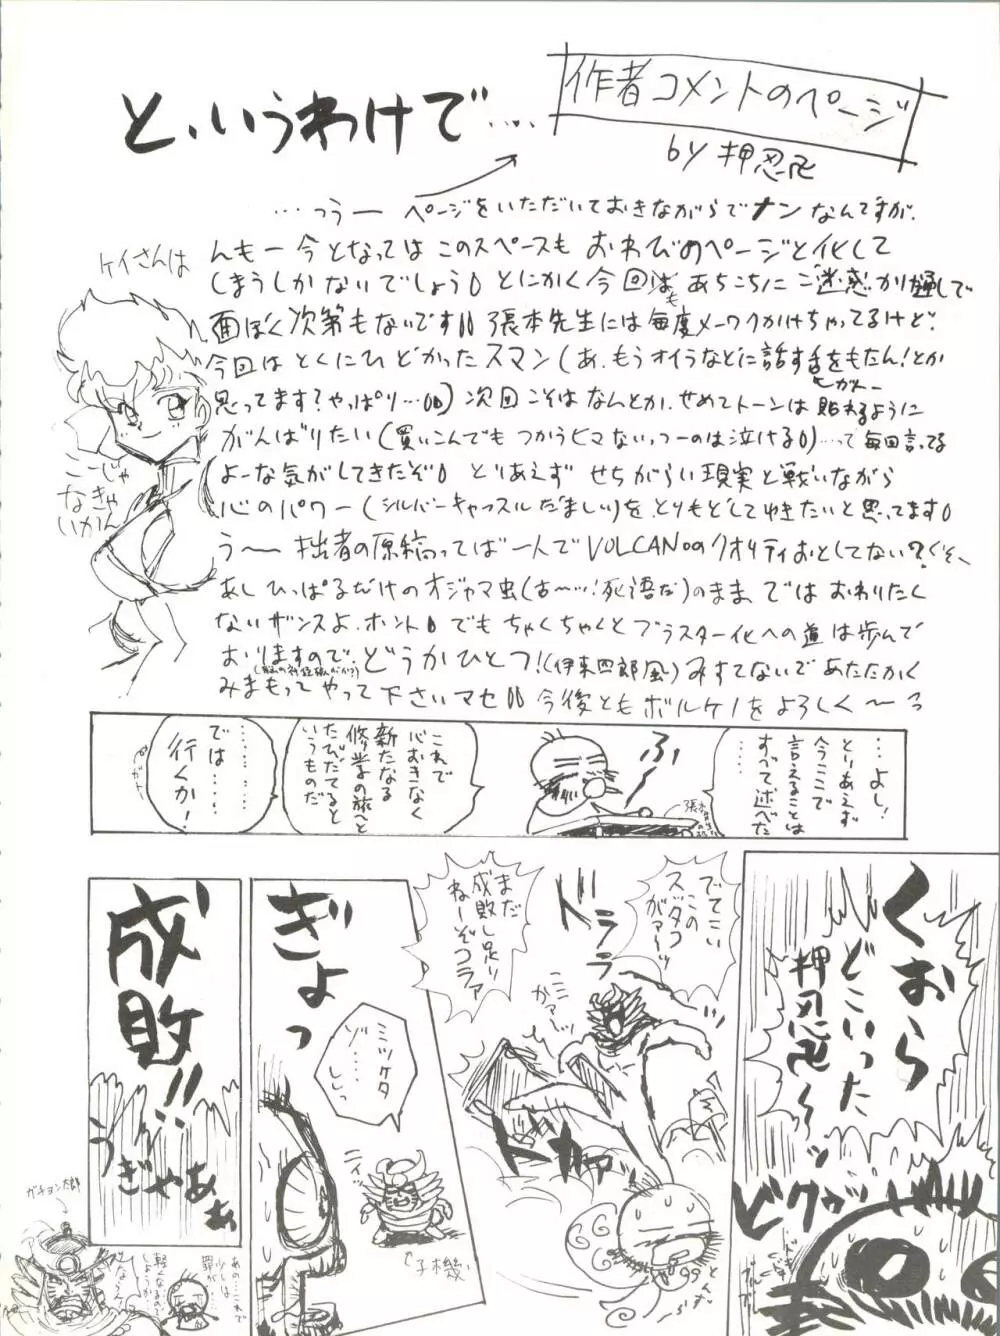 と、いうわけで…‥
作者コメントのページ
by 押忍卍
…つうー ページをいただいておきながらでナンなんですが、
んもー今となってはこのスペースも おわびのページと化して
しまうしかないでしょう とにかく今回も あちこちに ご迷惑かけ通しで
面ぼく次第もないです 張本先生には毎度メーワクかけちゃってるけど、
今回はとくにひどかったスマン(あ、もうオイラなどに話す舌をもたん!とか
思ってます?やっぱり…)次回こそはなんとか、せめてトーンは貼れるように
がんばりたい(買いこんでもつかうヒマないっつーのは泣ける)…って毎回言ってる
よーな気がしてきたぞ とりあえず せちがらい現実と戦いながら
心のパワー(シルバーキャッスルだましい)を、とりもどしてゆきたいと思ってます
う〜 拙者の原稿ってば一人でVOLCANOのクオリティおとしてない?くそ、
あしひっぱるだけのオジャマ虫(古〜ッ!死語だ)のまま、では おわりたく
ないザンスよ、ホント でも ちゃくちゃくとブラスター化への道は歩んで
おりますので、どうかひとつ!(伊東四郎風)みすてないであたたかく
みまもってやって下さいマセ 今後ともボルケーノをよろしく〜っ
ケイさんは
こーじゃ
なきゃ
いかん
…よし!
とりあえず
今ここで
言えることは
すべて述べた
ふー
これで
心おきなく
新たなる
修学の旅へと
たびだてると
いうものだ
では……
行くか!
くおら
どこいった
押忍卍〜ッ
ビクゥッ
でてこい
このスッタコ
がァーッ
ドドドド
まだ
成敗し足り
ねーぞコラァ
ドカァッ
ぎょっ
ミツケタ
ゾ……
ニイッ
子機
成敗!!
うぎゃああぁ
ガチョン太郎
あの…これで
少しは
罪が
軽くなるので
しょうか